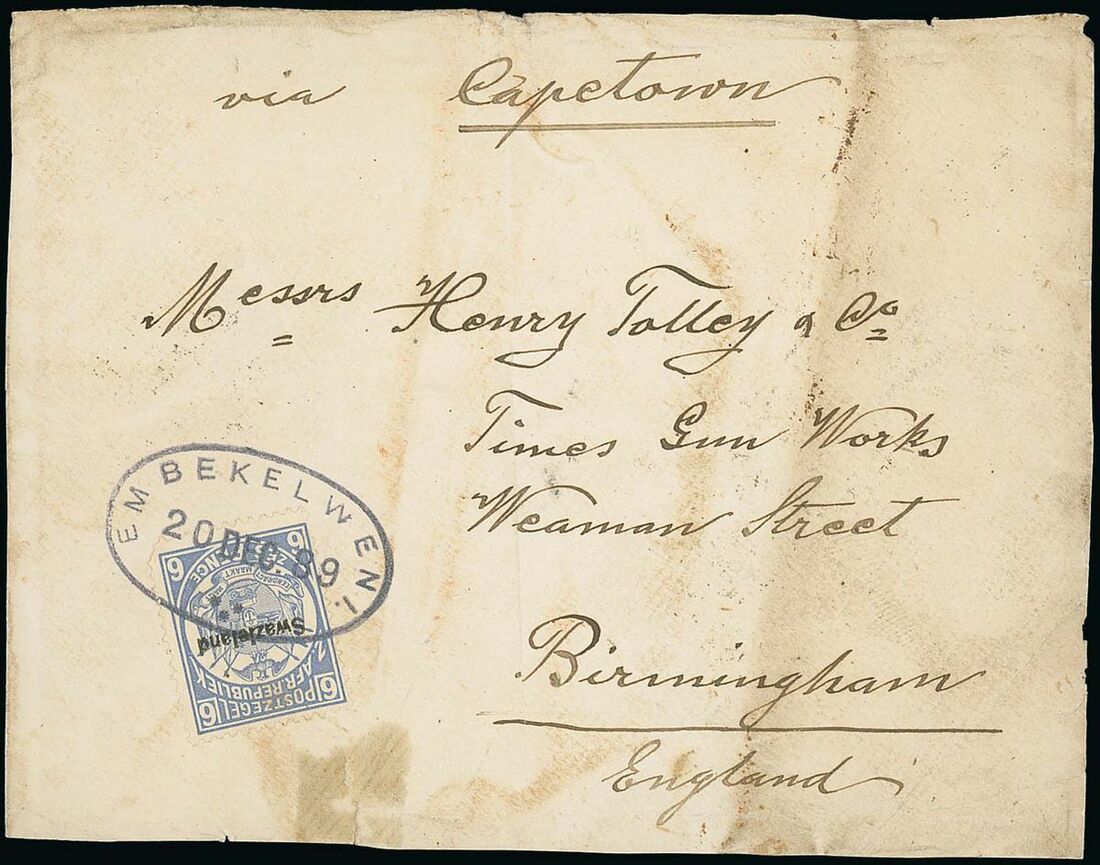 via Capetown
Messrs Henry Tolley & Co
Times Gun Works
Weaman Street
Birmingham
England
EMBEKELWENI.
20 DEC. 89
6 ZES PENCE 6
EENDRAGT MAAKT MAGT
Swazieland
Z. AFR. REPUBLIEK
6 POSTZEGEL 6